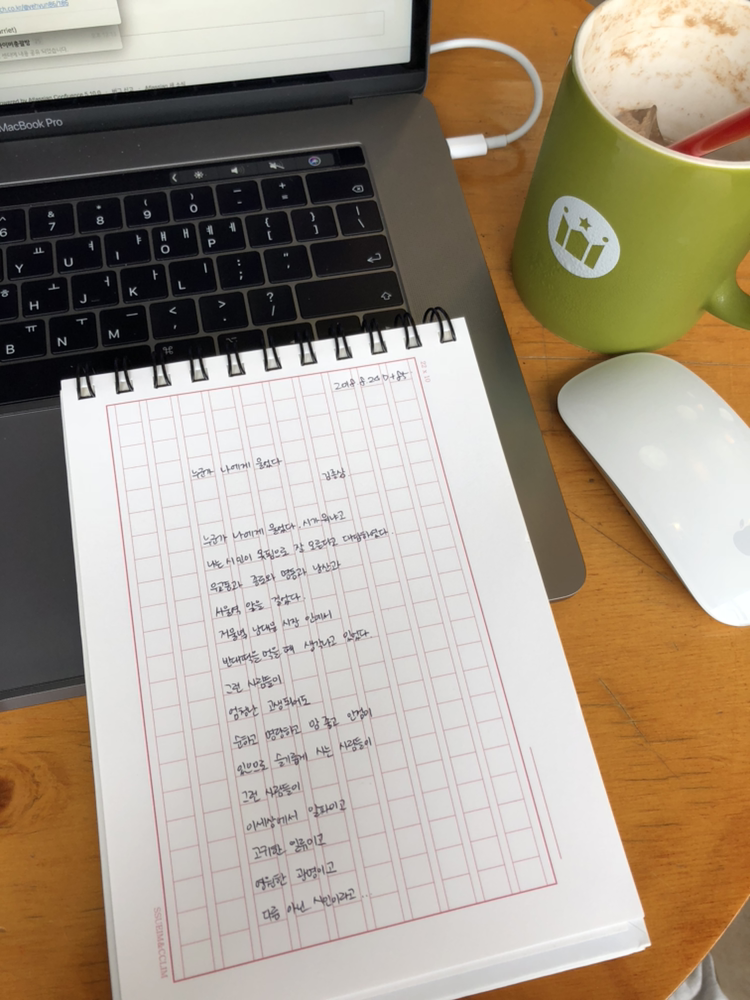 MacBook Pro
누군가 나에게 물었다
김종삼
누군가 나에게 물었다. 시가 뭐냐고
나는 시인이 못됨으로 잘 모른다고 대답하였다.
무교동과 종로와 명동과 남산과
서울역 앞을 걸었다
저물녘 남대문 시장 안에서
빈대떡을 먹을 때 생각나고 있었다
그런 사람들이
엄청난 고생되어도
순하고 명랑하고 맘 좋고 인정이
있으므로 슬기롭게 사는 사람들이
그런 사람들이
이세상에서 알파이고
고귀한 인류이고
영원한 광명이고
다름 아닌 시인이라고..